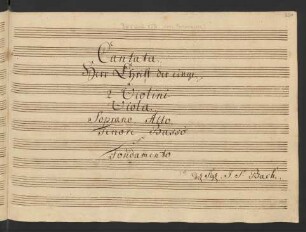 Cantata
Herr Christ der einge
2 Violini
Viola
Soprano Alto
Tenore Basso
Fondamento
J. S. Bach.